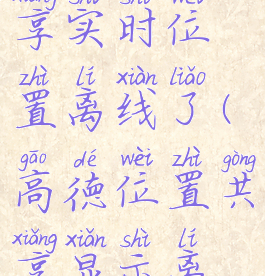 xiǎng shí shí wèi
享实时位
zhì lí xiàn liǎo
置离线了(
gāo dé wèi zhì gòng
高德位置共
xiǎng xiǎn shì lí
享显示离